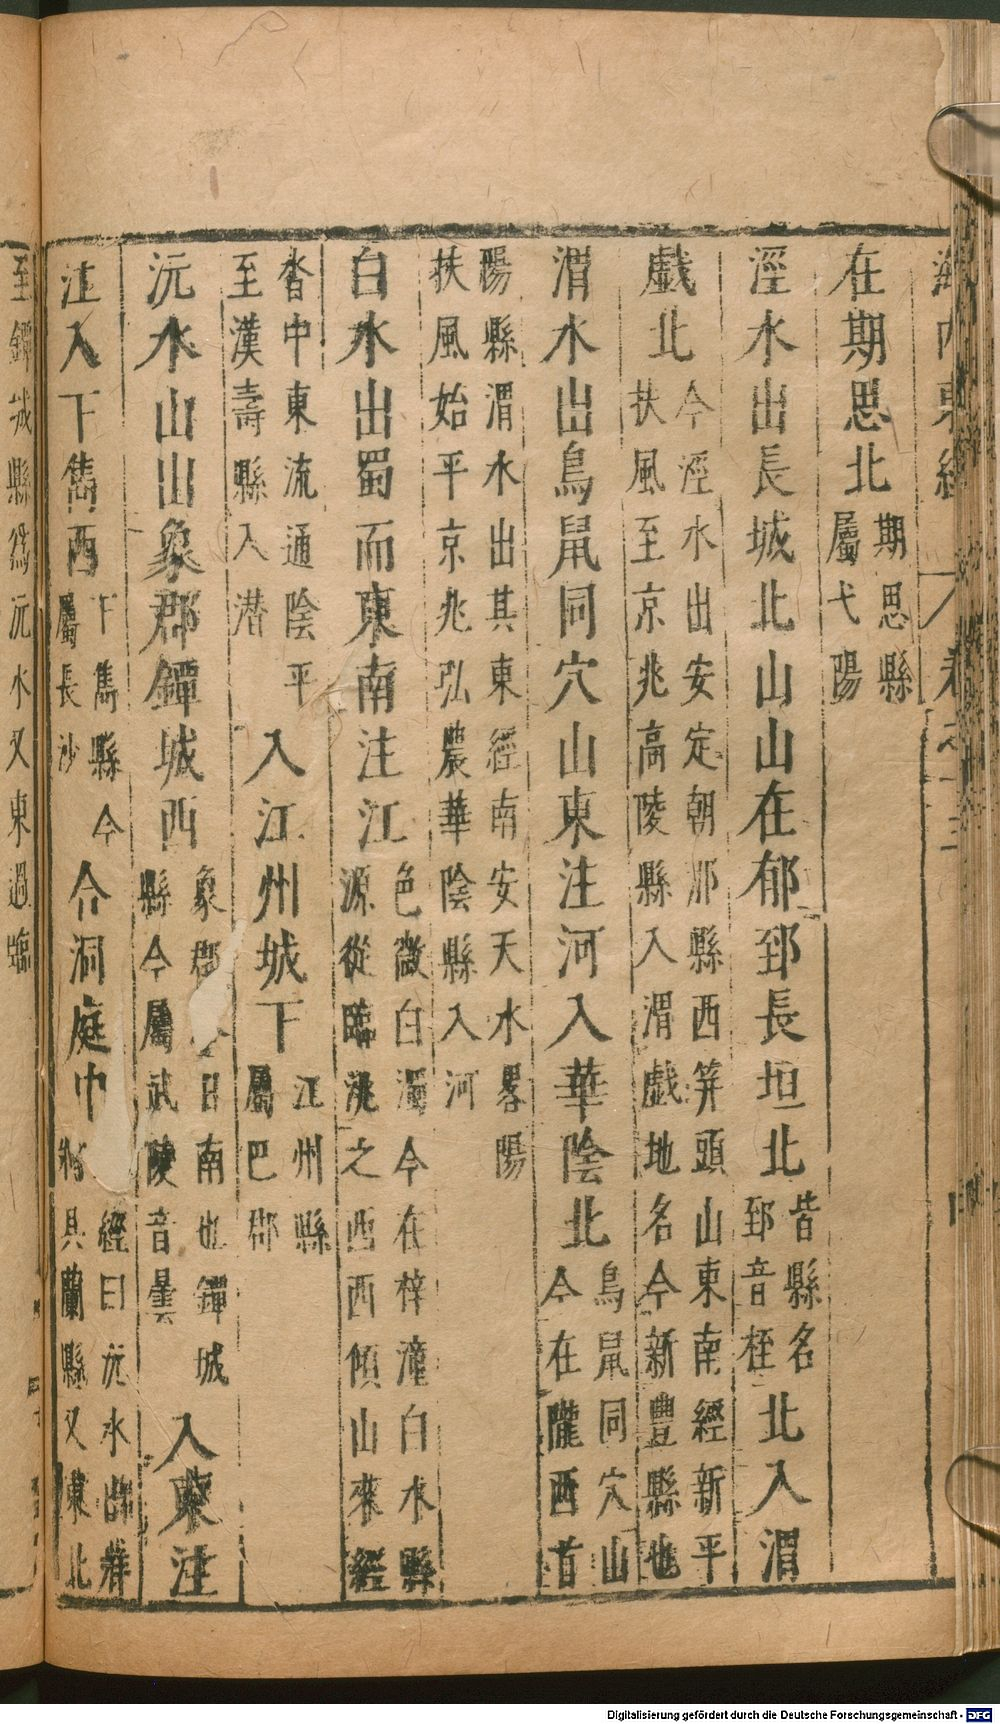 海內東經
在期思北
期思縣
屬弋陽
涇水出長城北山山在郁郅長垣北
皆縣名
郅音桎
北入渭
戲北
今涇水出安定朝那縣西笄頭山東南經新平
扶風至京兆高陵縣入渭戲地名今新豐縣也
渭水出鳥鼠同穴山東注河入華陰北
鳥鼠同穴山
今在隴西首
陽縣渭水出其東經南安天水畧陽
扶風始平京兆弘農華陰縣入河
白水出蜀而東南注江
色微白濁今在梓潼白水縣
源從臨洮之西西傾山來經
沓中東流通陰平
至漢壽縣入潛
入江州城下
江州縣
屬巴郡
沅水山出象郡鐔城西
象郡今日南也鐔城
縣今屬武陵音曇
入東注
江入下雋西
下雋縣今
屬長沙
合洞庭中
經曰沅水出牂
且蘭縣又東北
至鐔城縣爲沅水又東過臨
Digitalisierung gefördert durch die Deutsche Forschungsgemeinschaft - DFG